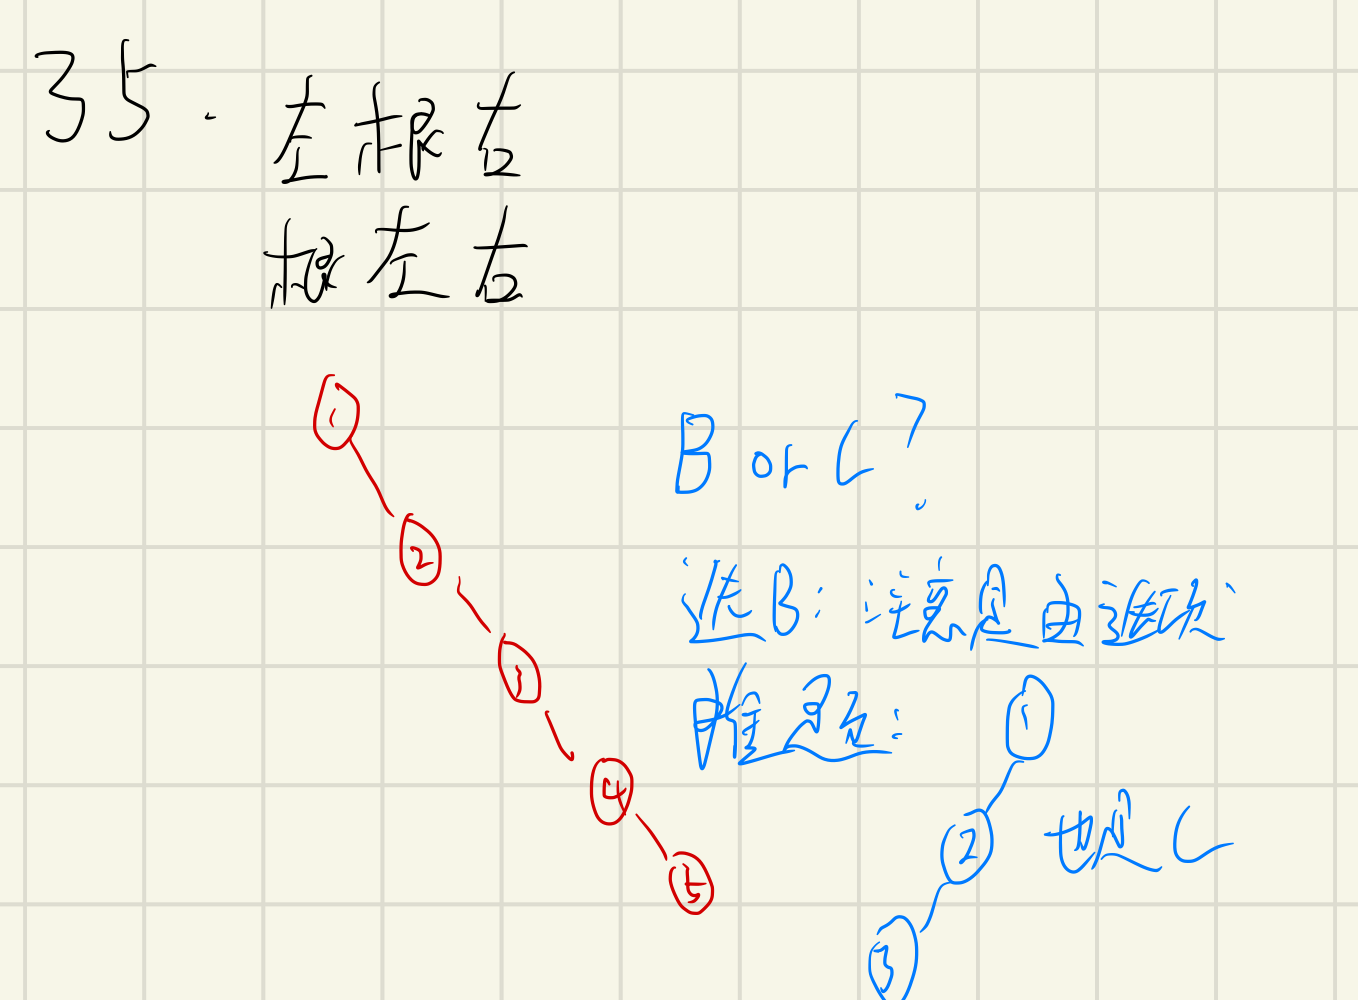 35. 左根右
根左右
1
2
3
4
5
B or C?
选B: 注意是由选项
推题:
1
2
也是C
3